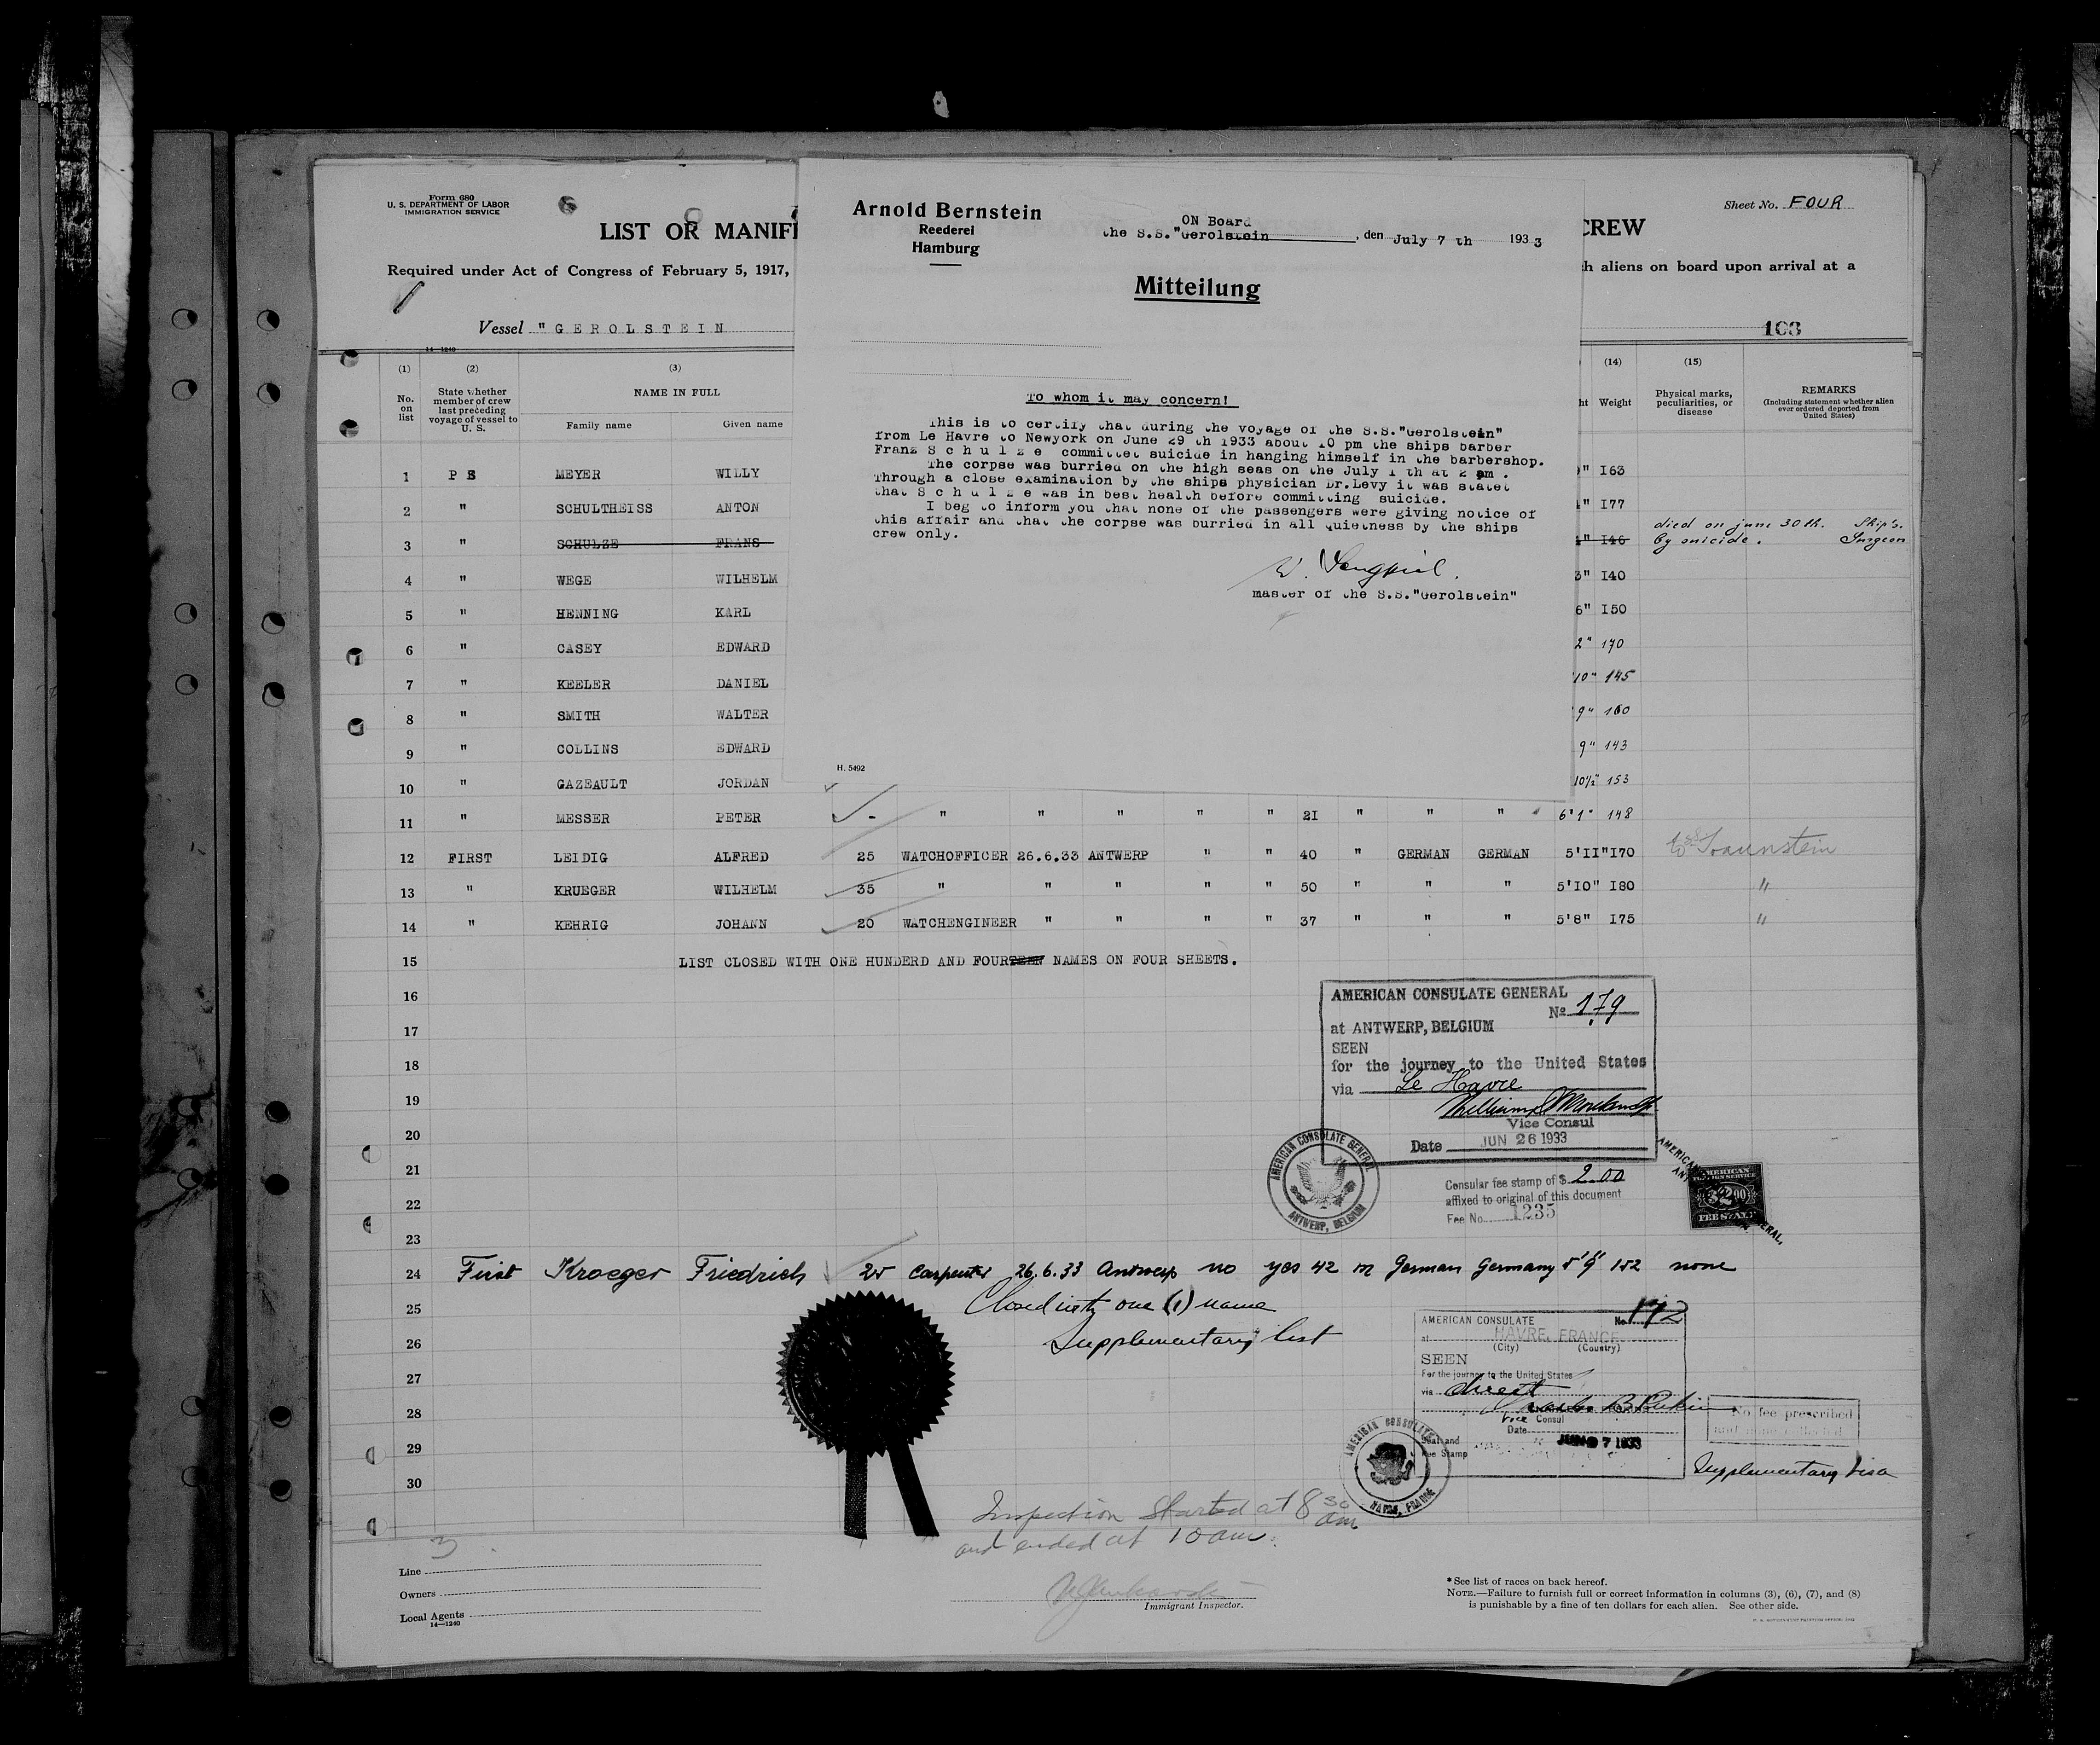 Form 680
U. S. DEPARTMENT OF LABOR
IMMIGRATION SERVICE
Sheet No. FOUR
LIST OR MANIF
CREW
Required under Act of Congress of February 5, 1917,
h aliens on board upon arrival at a
Vessel "GEROLSTEIN
103
14—1240
Arnold Bernstein
Reederei
Hamburg
ON Board
the S.S."Gerolstein, den July 7 th 1933
Mitteilung
To whom it may concern!
This is to certify that during the voyage of the S.S."Gerolstein"
from Le Havre to Newyork on June 29 th 1933 about 10 pm the ships barber
Franz S c h u l z e committet suicide in hanging himself in the barbershop.
The corpse was burried on the high seas on the July 1 th at 2 pm .
Through a close examination by the ships physician Dr.Levy it was statet
that S c h u l z e was in best health before committing suicide.
I beg to inform you that none of the passengers were giving notice of
this affair and that the corpse was burried in all quietness by the ships
crew only.
master of the S.S."Gerolstein"
H. 5492
(1) (2) (3) (14) (15)
No. on list
State whether member of crew last preceding voyage of vessel to U. S.
NAME IN FULL
Family name Given name
ht Weight
Physical marks, peculiarities, or disease
REMARKS
(Including statement whether alien ever ordered deported from United States)
1 P S MEYER WILLY " I63
2 " SCHULTHEISS ANTON " I77
3 " SCHULZE FRANS " I46 died on june 30th. by suicide. Ship's. Surgeon
4 " WEGE WILHELM 3" I40
5 " HENNING KARL 6" I50
6 " CASEY EDWARD 2" 170
7 " KEELER DANIEL 10" 145
8 " SMITH WALTER 9" 160
9 " COLLINS EDWARD 9" 143
10 " GAZEAULT JORDAN 10½" 153
11 " MESSER PETER - " " " " " 21 " " " 6'1" 148
12 FIRST LEIDIG ALFRED 25 WATCHOFFICER 26.6.33 ANTWERP " " 40 " GERMAN GERMAN 5'II" I70 Traunstein
13 " KRUEGER WILHELM 35 " " " " " 50 " " " 5'IO" I80 "
14 " KEHRIG JOHANN 20 WATCHENGINEER " " " " 37 " " " 5'8" I75 "
15 LIST CLOSED WITH ONE HUNDERD AND FOURTEEN NAMES ON FOUR SHEETS.
16
17
18
19
20
21
22
23
AMERICAN CONSULATE GENERAL
No 179
at ANTWERP, BELGIUM
SEEN
for the journey to the United States
via Le Havre
Vice Consul
Date JUN 26 1933
AMERICAN CONSULATE GENERAL
ANTWERP, BELGIUM
Consular fee stamp of $ 2.00
affixed to original of this document
Fee No. 1235
AMERICAN
FOREIGN SERVICE
$2.00
FEE STAMP
24 First Kroeger Friedrich 25 Carpenter 26.6.33 Antwerp no yes 42 m German Germany 5'9" 152 none
25 Closed with one (1) name
26 Supplementary list
27
28
29
30
AMERICAN CONSULATE No. 172
at HAVRE, FRANCE
(City) (Country)
SEEN
For the journey to the United States
via direct
Vice Consul
Date
Seal and
Fee Stamp
JUN 27 1933
AMERICAN CONSULATE
HAVRE, FRANCE
No fee prescribed
and none collected
Supplementary visa
Inspection Started at 8 30 am
and ended at 10 am.
3
Line
Owners
Local Agents
14—1240
Immigrant Inspector.
* See list of races on back hereof.
NOTE.—Failure to furnish full or correct information in columns (3), (6), (7), and (8)
is punishable by a fine of ten dollars for each alien. See other side.